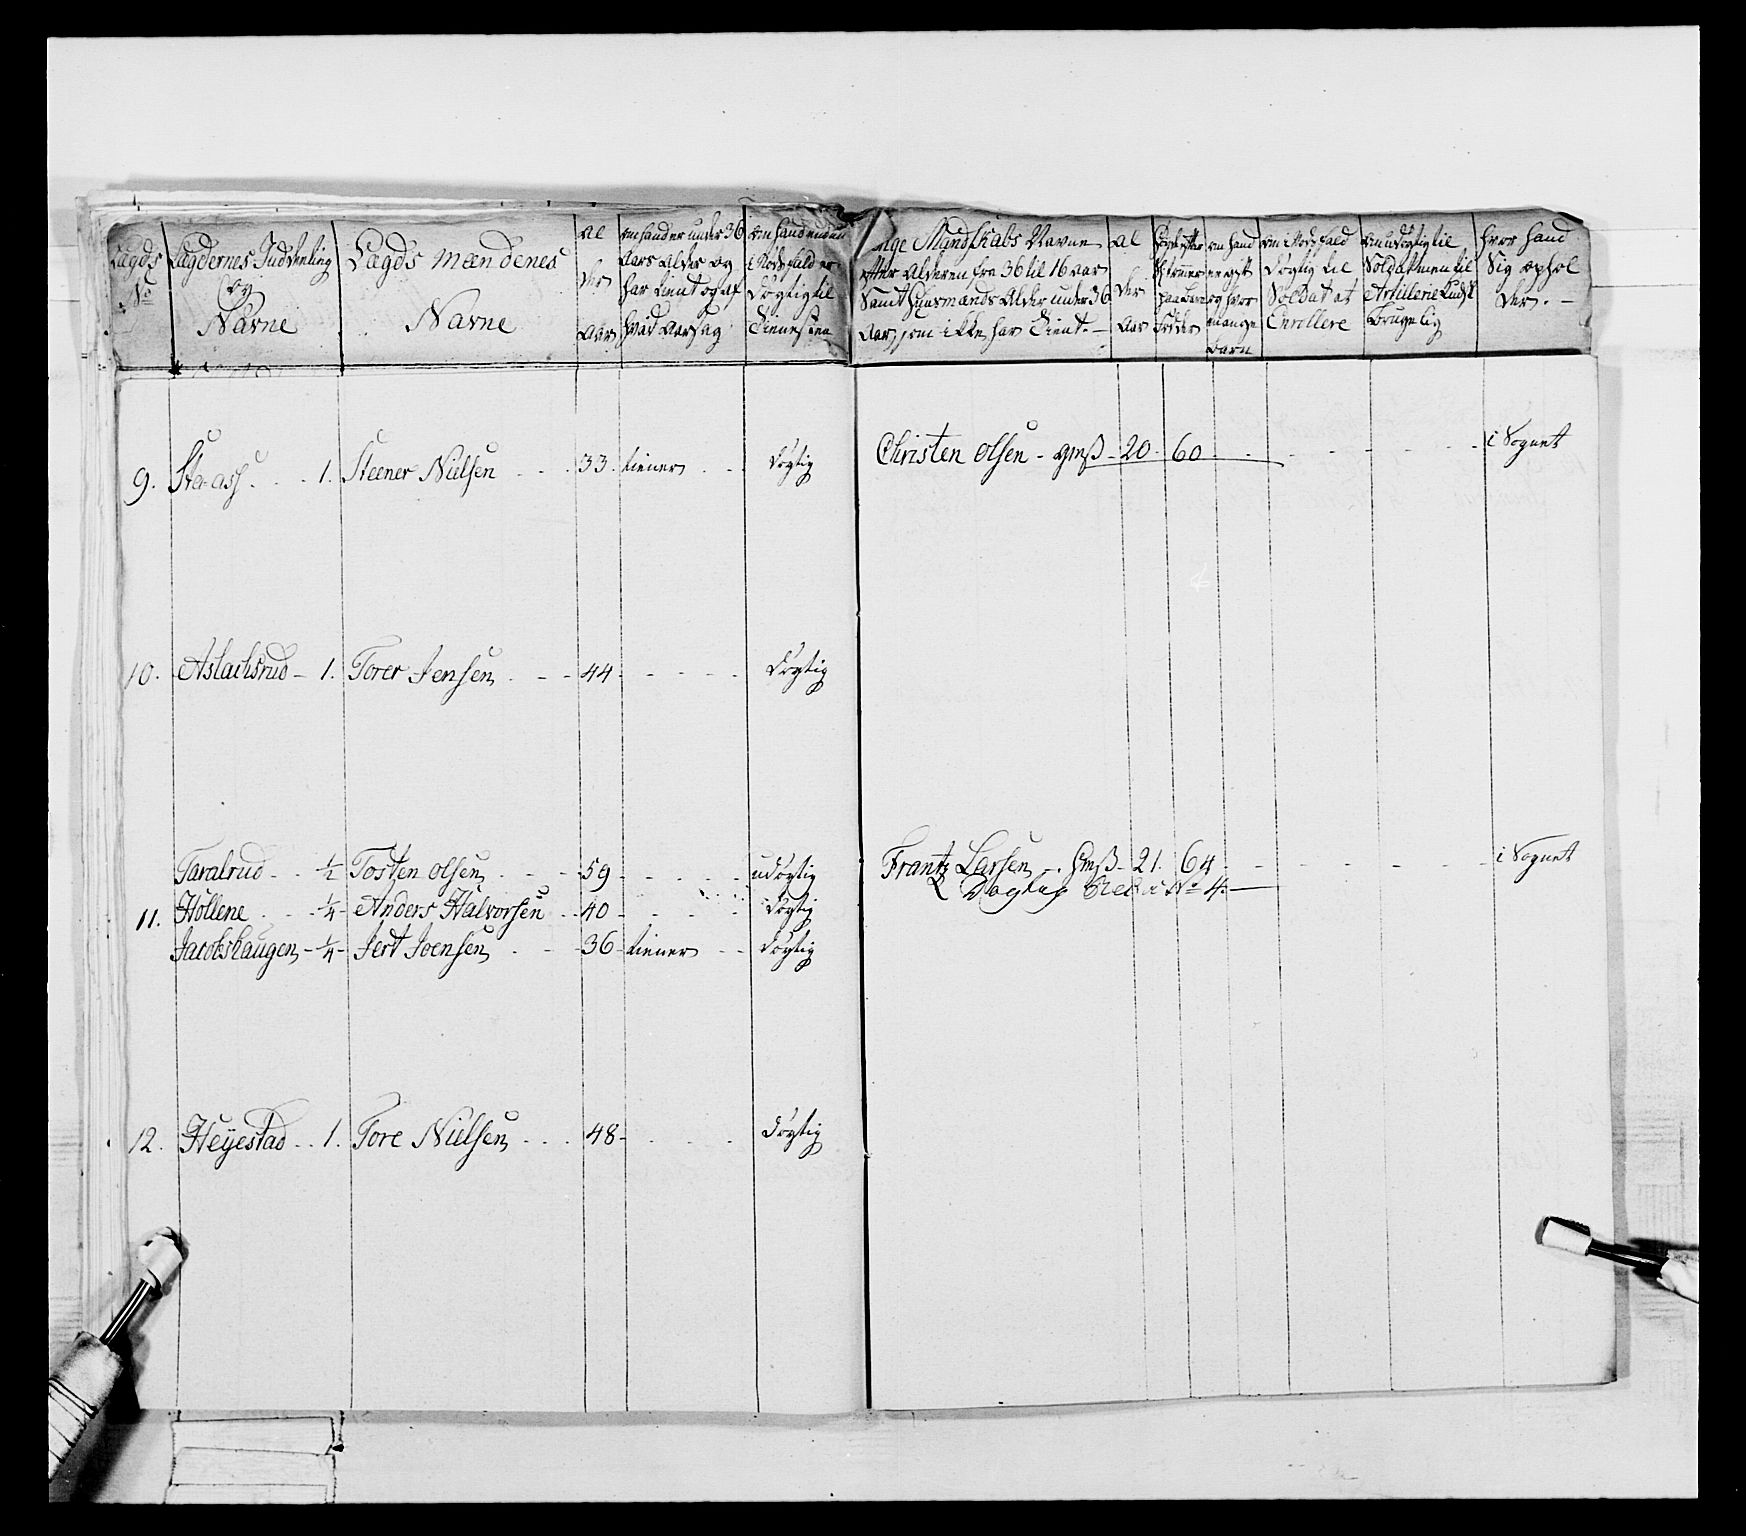 Lægds
No
Lægdernes Inddeeling
og
Navne
Lægds Mændenes
Navne
Al
der
Aar
om hand er under 36
Aars alder og
har tient og af
hvad Aarsag
om hand endnu
i Nødsfald er
Døgtig til
Tienesten
Mandskabs Navne
efter Alderen fra 36 til 16 aar
Samt Huusmænds Alder under 36
Aar, som ikke har Tient. –
Al
der
Aar
om hand
er gift
og hvor
mange
Barn
om i Nødsfald
Døgtig til
Soldat at
Enrollere
om udøgtig til
Soldat men til
Artillerie
Brugelig
hvor hand
Sig ophol
der. –
9. 1. Steener Nielsen - - - 33. tiener - - Døgtig Christen Olsen - gmß - 20. 60 - - - - - - i Sognet
10. Aslachsrud - 1. Torer Jensen - - - 44 - - - - - Døgtig
Taralrud - - ½ Tosten Olsen - - - 59 - - - - - udøgtig Frantz Larsen - Hmß - 21. 64 - - - - - - i Sognet
No 4. –
11. Hollene - - ¼ - Anders Halvorsen - - 40 - - - - - Døgtig
Jacobshaugen - ¼ - Jert Joensen - - - 36 - tiener - - Døgtig
12. Heyestad - - 1. Tore Nielsen - - - 48 - - - - - Døgtig